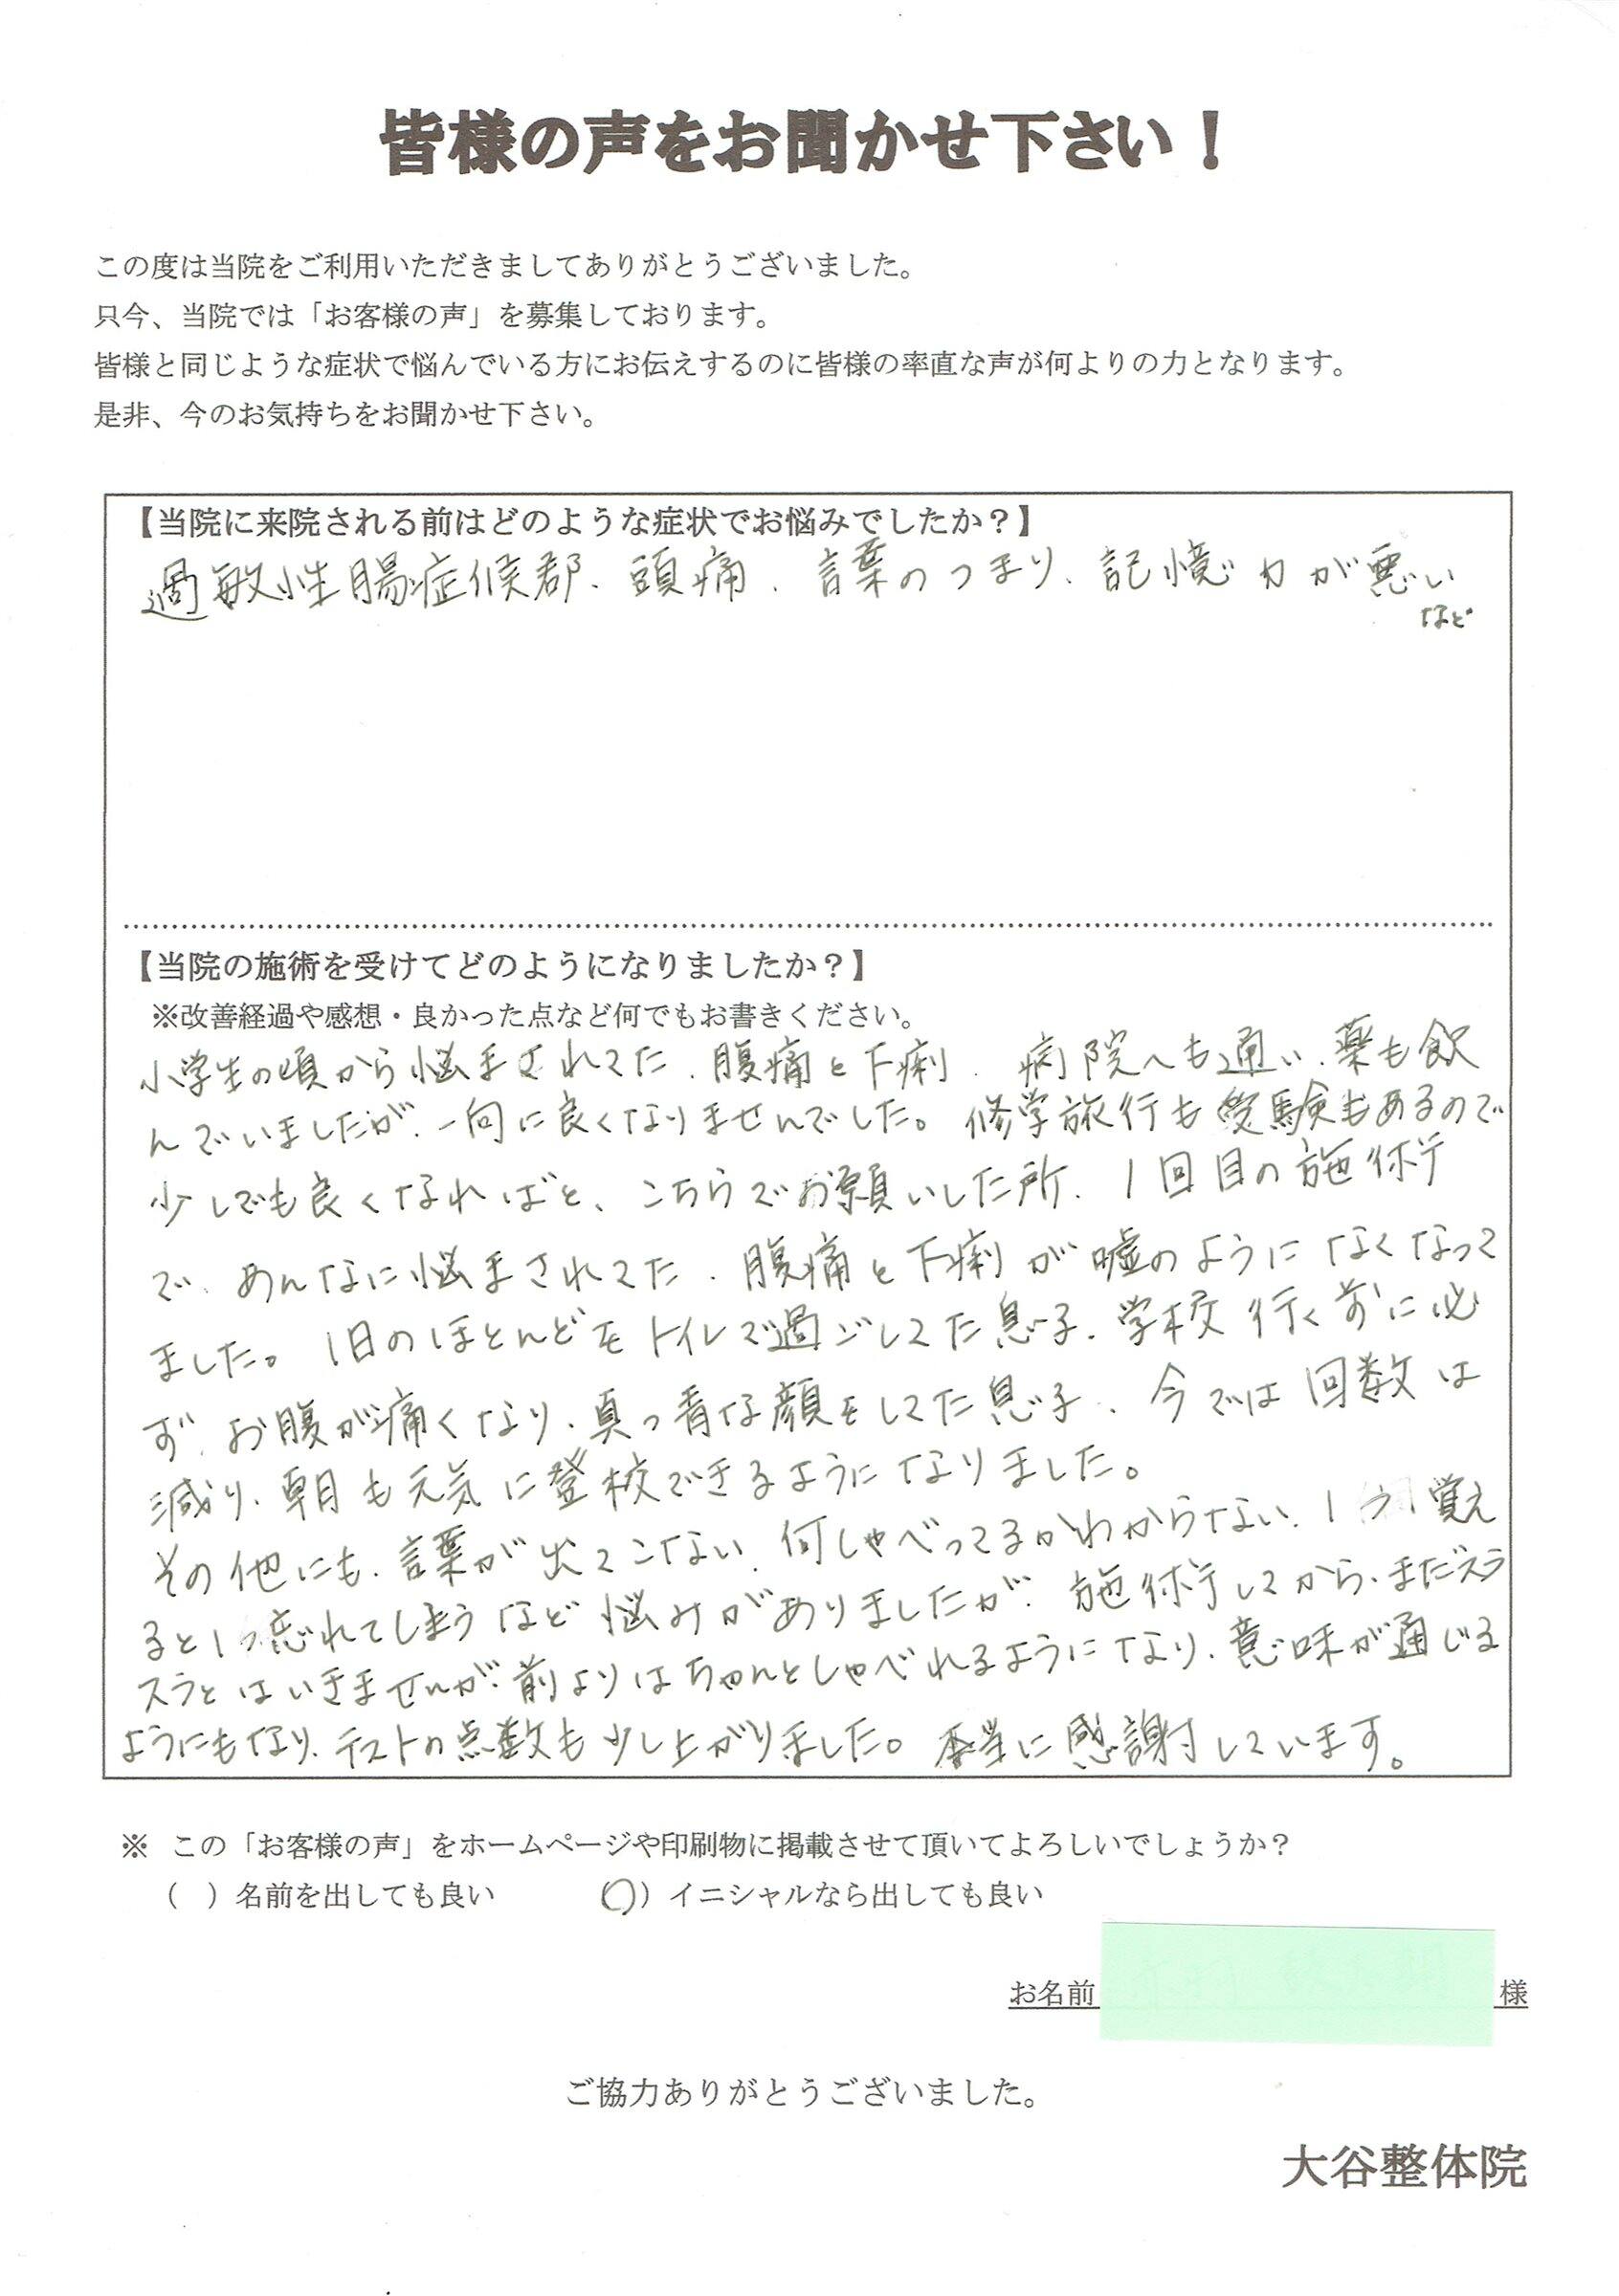 皆様の声をお聞かせ下さい！
この度は当院をご利用いただきましてありがとうございました。
只今、当院では「お客様の声」を募集しております。
皆様と同じような症状で悩んでいる方にお伝えするのに皆様の率直な声が何よりの力となります。
是非、今のお気持ちをお聞かせ下さい。
【当院に来院される前はどのような症状でお悩みでしたか？】
過敏性腸症候群、頭痛、言葉のつまり、記憶力が悪い
など
【当院の施術を受けてどのようになりましたか？】
※改善経過や感想・良かった点など何でもお書きください。
小学生の頃から悩まされてた、腹痛と下痢、病院へも通い、薬も飲
んでいましたが、一向に良くなりませんでした。修学旅行も受験もあるので
少しでも良くなればと、こちらでお願いした所、1回目の施術
で、あんなに悩まされてた、腹痛と下痢が嘘のようになくなって
ました。1日のほとんどをトイレで過ごしてた息子、学校行く前に必
ず、お腹が痛くなり、真っ青な顔をしてた息子、今では回数は
減り、朝も元気に登校できるようになりました。
その他にも、言葉が出てこない、何しゃべってるかわからない、1つ覚え
ると1つ忘れてしまうなど悩みがありましたが、施術してから、まだスラ
スラとはいきませんが、前よりはちゃんとしゃべれるようになり、意味が通じる
ようにもなり、テストの点数も少し上がりました。本当に感謝しています。
※ この「お客様の声」をホームページや印刷物に掲載させて頂いてよろしいでしょうか？
（ ）名前を出しても良い （○）イニシャルなら出しても良い
お名前 様
ご協力ありがとうございました。
大谷整体院